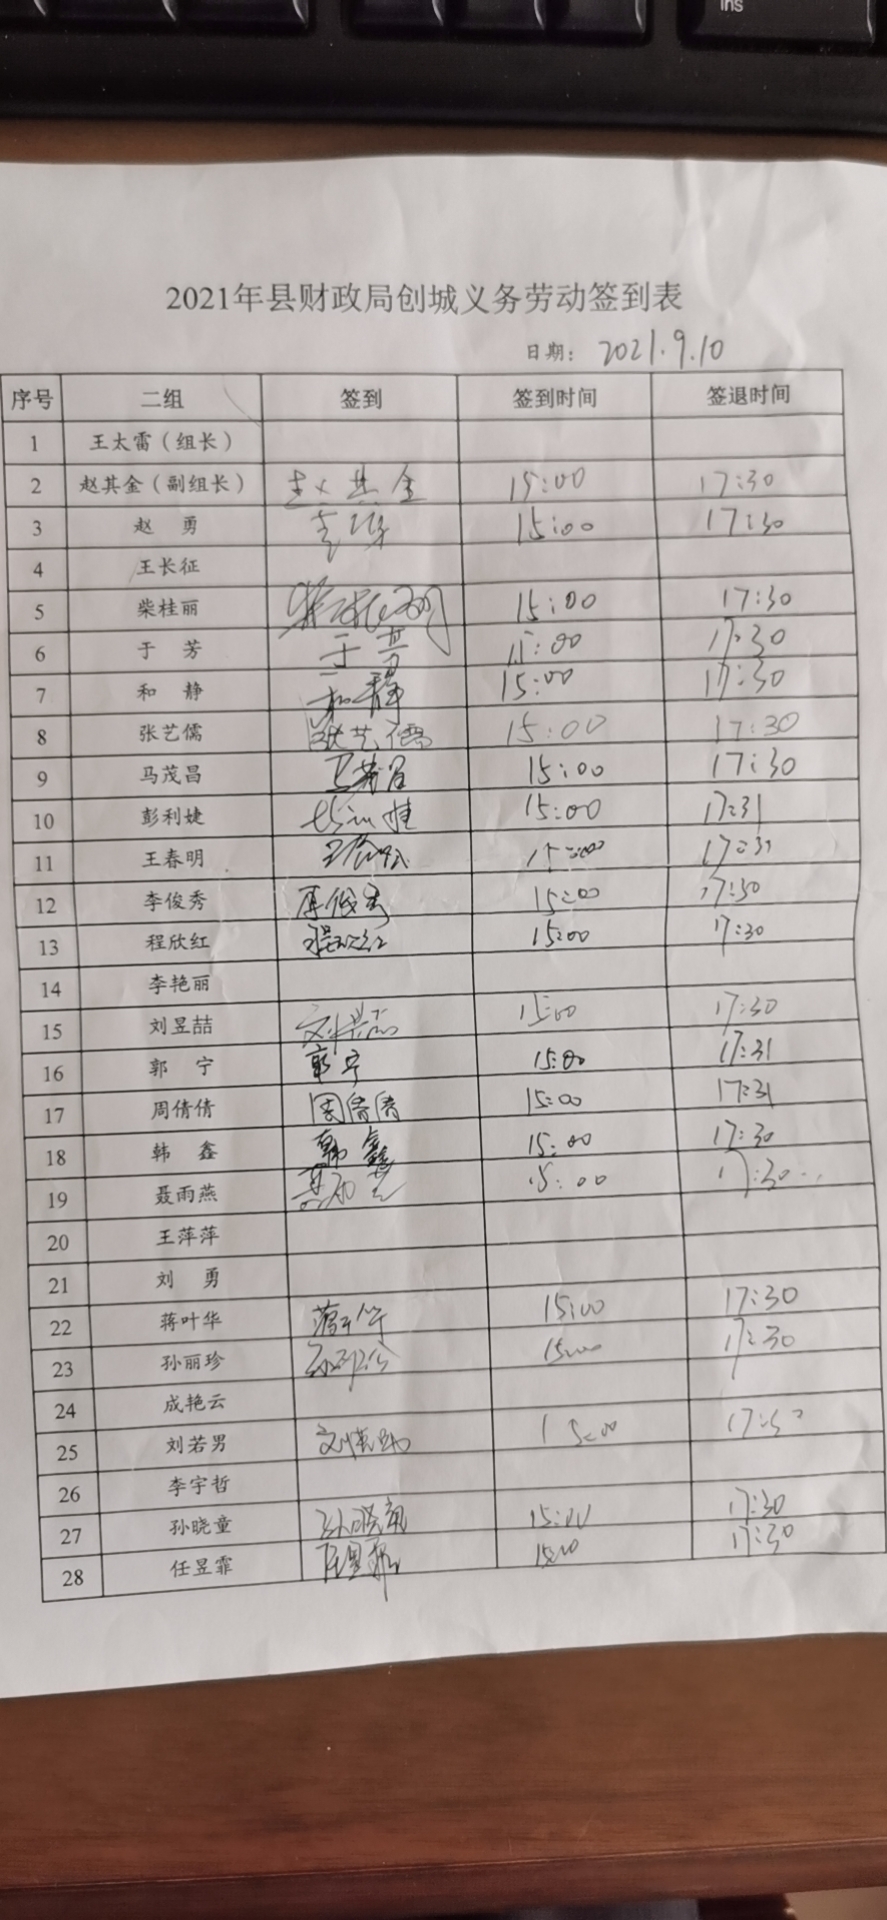 Ins
2021年县财政局创城义务劳动签到表
日期： 2021.9.10
序号 二组 签到 签到时间 签退时间
1 王太雷（组长）
2 赵其金（副组长） 赵其金 15:00 17:30
3 赵 勇 15:00 17:30
4 王长征
5 柴桂丽 柴桂丽 15:00 17:30
6 于 芳 于芳 15:00 17:30
7 和 静 和静 15:00 17:30
8 张艺儒 张艺儒 15:00 17:30
9 马茂昌 马茂昌 15:00 17:30
10 彭利婕 15:00 17:31
11 王春明 王春明 15:00 17:31
12 李俊秀 李俊秀 15:00 17:30
13 程欣红 程欣红 15:00 17:30
14 李艳丽
15 刘昱喆 15:00 17:30
16 郭 宁 郭宁 15:00 17:31
17 周倩倩 周倩倩 15:00 17:31
18 韩 鑫 韩鑫 15:00 17:30
19 聂雨燕 15:00 17:30
20 王萍萍
21 刘 勇
22 蒋叶华 蒋叶华 15:00 17:30
23 孙丽珍 孙丽珍 15:00 17:30
24 成艳云
25 刘若男 刘若男 15:00 17:30
26 李宇哲
27 孙晓童 孙晓童 15:00 17:30
28 任昱霏 任昱霏 15:00 17:30